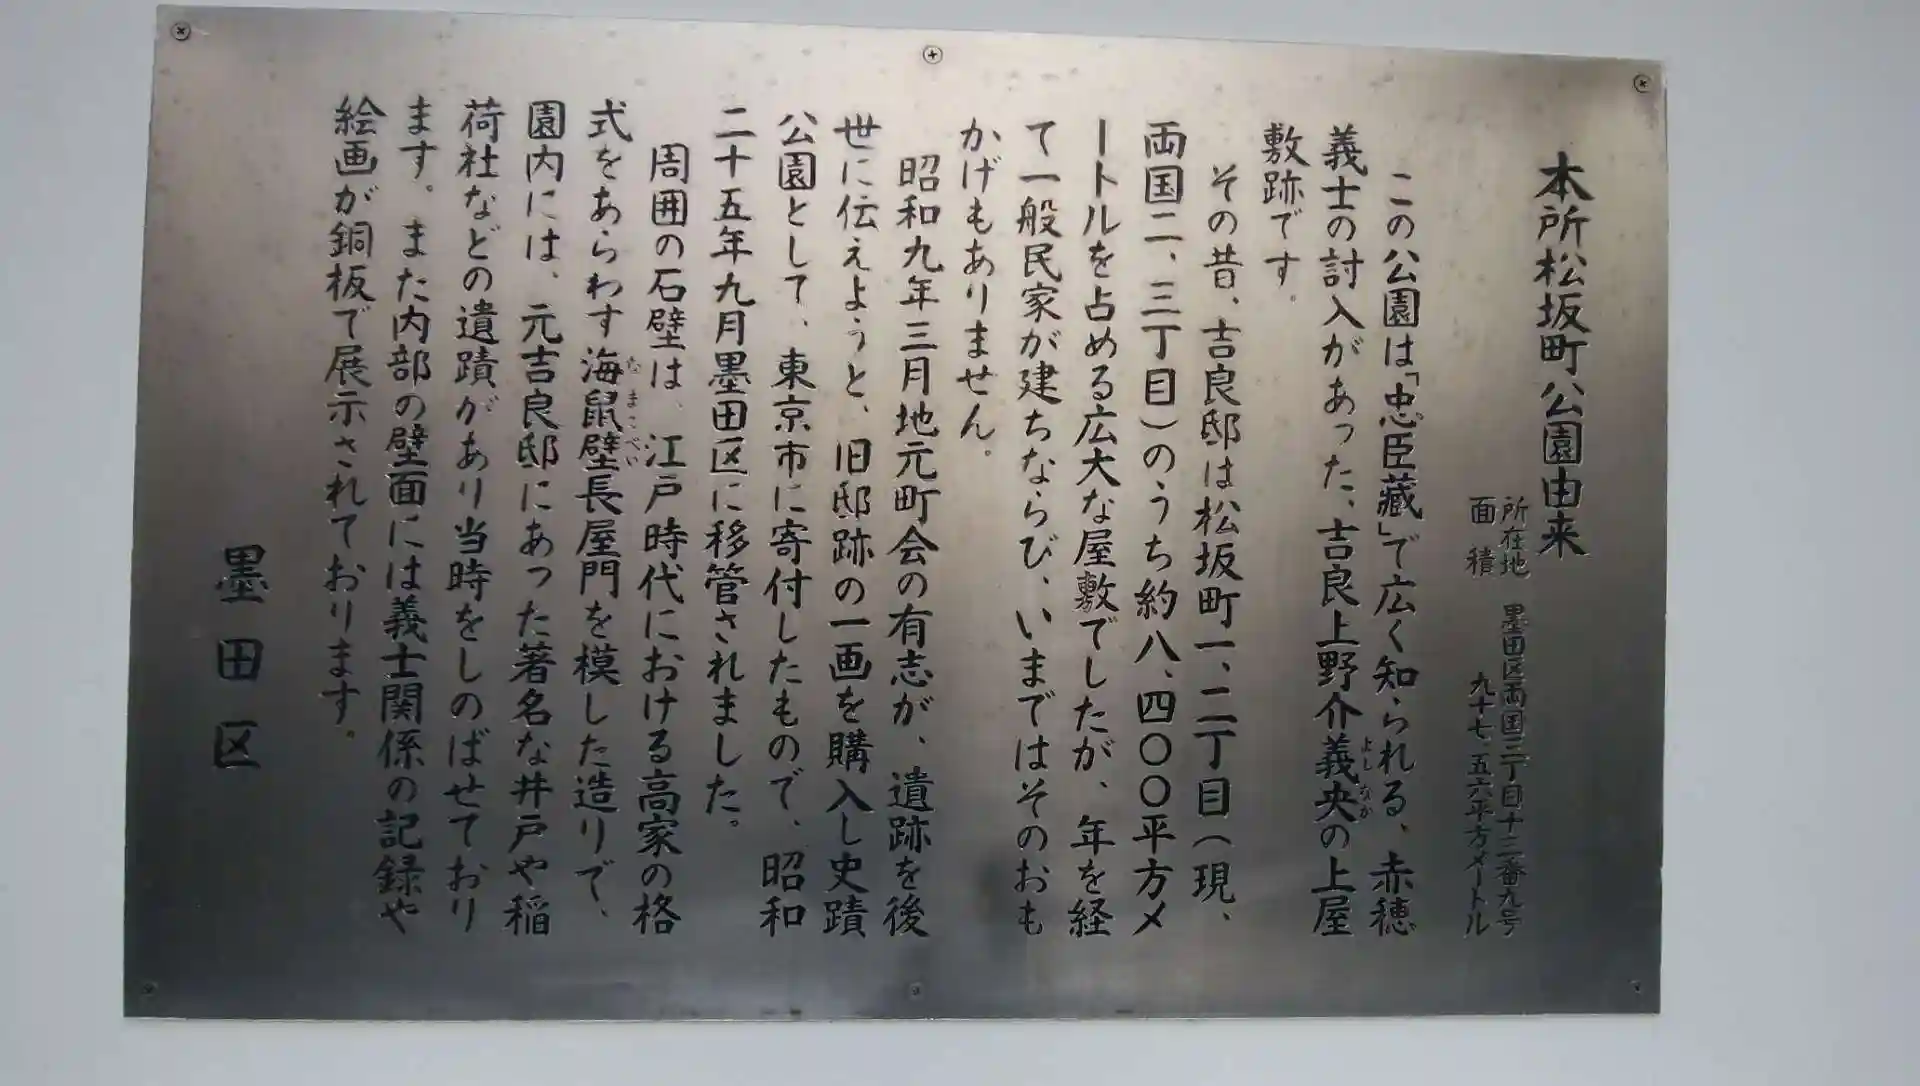 本所松坂町公園由来
所在地 墨田区両国三丁目十三番九号
面積 九十七.五六平方メートル
この公園は「忠臣蔵」で広く知られる、赤穂
義士の討入があった、吉良上野介義央の上屋
よしなか
敷跡です。
その昔、吉良邸は松坂町一、二丁目(現、
両国二、三丁目)のうち約八、四〇〇平方メ
ートルを占める広大な屋敷でしたが、年を経
て一般民家が建ちならび、いまではそのおも
かげもありません。
昭和九年三月地元町会の有志が、遺跡を後
世に伝えようと、旧邸跡の一画を購入し史蹟
公園として、東京市に寄付したもので、昭和
二十五年九月墨田区に移管されました。
周囲の石壁は、江戸時代における高家の格
式をあらわす海鼠壁長屋門を模した造りで、
なまこべい
園内には、元吉良邸にあった著名な井戸や稲
荷社などの遺蹟があり当時をしのばせており
ます。また内部の壁面には義士関係の記録や
絵画が銅板で展示されております。
墨田区